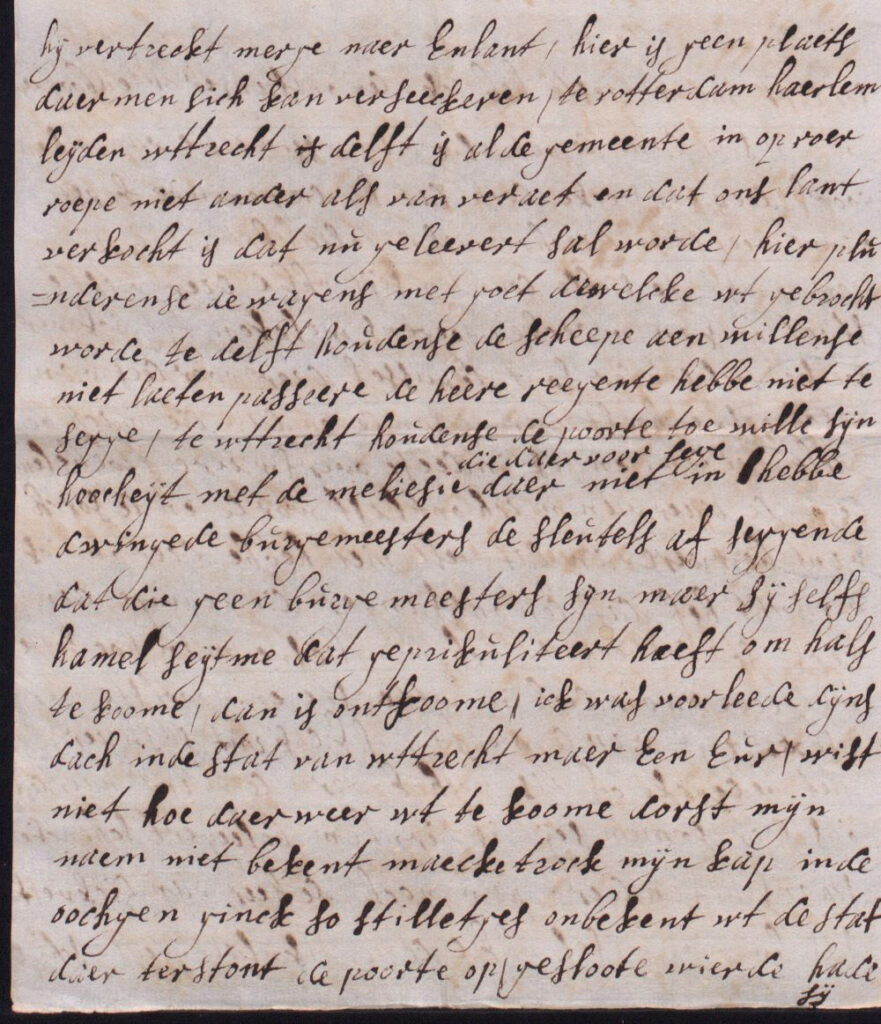 hij vertreckt merge naer Enlant / hier is geen plaets
daer men sich kan verseeckeren / te rotterdam haerlem
leijden wttrecht delft is al de gemeente in oproer
roepe niet ander als van veraet en dat ons lant
verkocht is dat nu geleevert sal worde / hier plu
=nderense de wagens met goet dewelcke wt gebrocht
worde te delft houdense de scheepe aen willense
niet laeten passeere de heere reegente hebbe niet te
segge / te wttrecht houdense de poorte toe wille sijn
die daer voor
hoocheijt met de meliesie daer niet in hebbe
dwingede burgemeesters de sleutels af seggende
dat die geen burgemeesters sijn maer sij selfs
hamel seijt me dat geprikuliteert heeft om hals
te koome / dan is ontkoome / ick was voorleede dijns
dach inde stat van wttrecht maer Een Eur / wist
niet hoe daer weer wt te koome dorst mijn
naem niet bekent maecke trock mijn kap inde
oochgen ginck so stilletges onbekent wt de stat
daer terstont de poorte op / gesloote wierde hade
sij